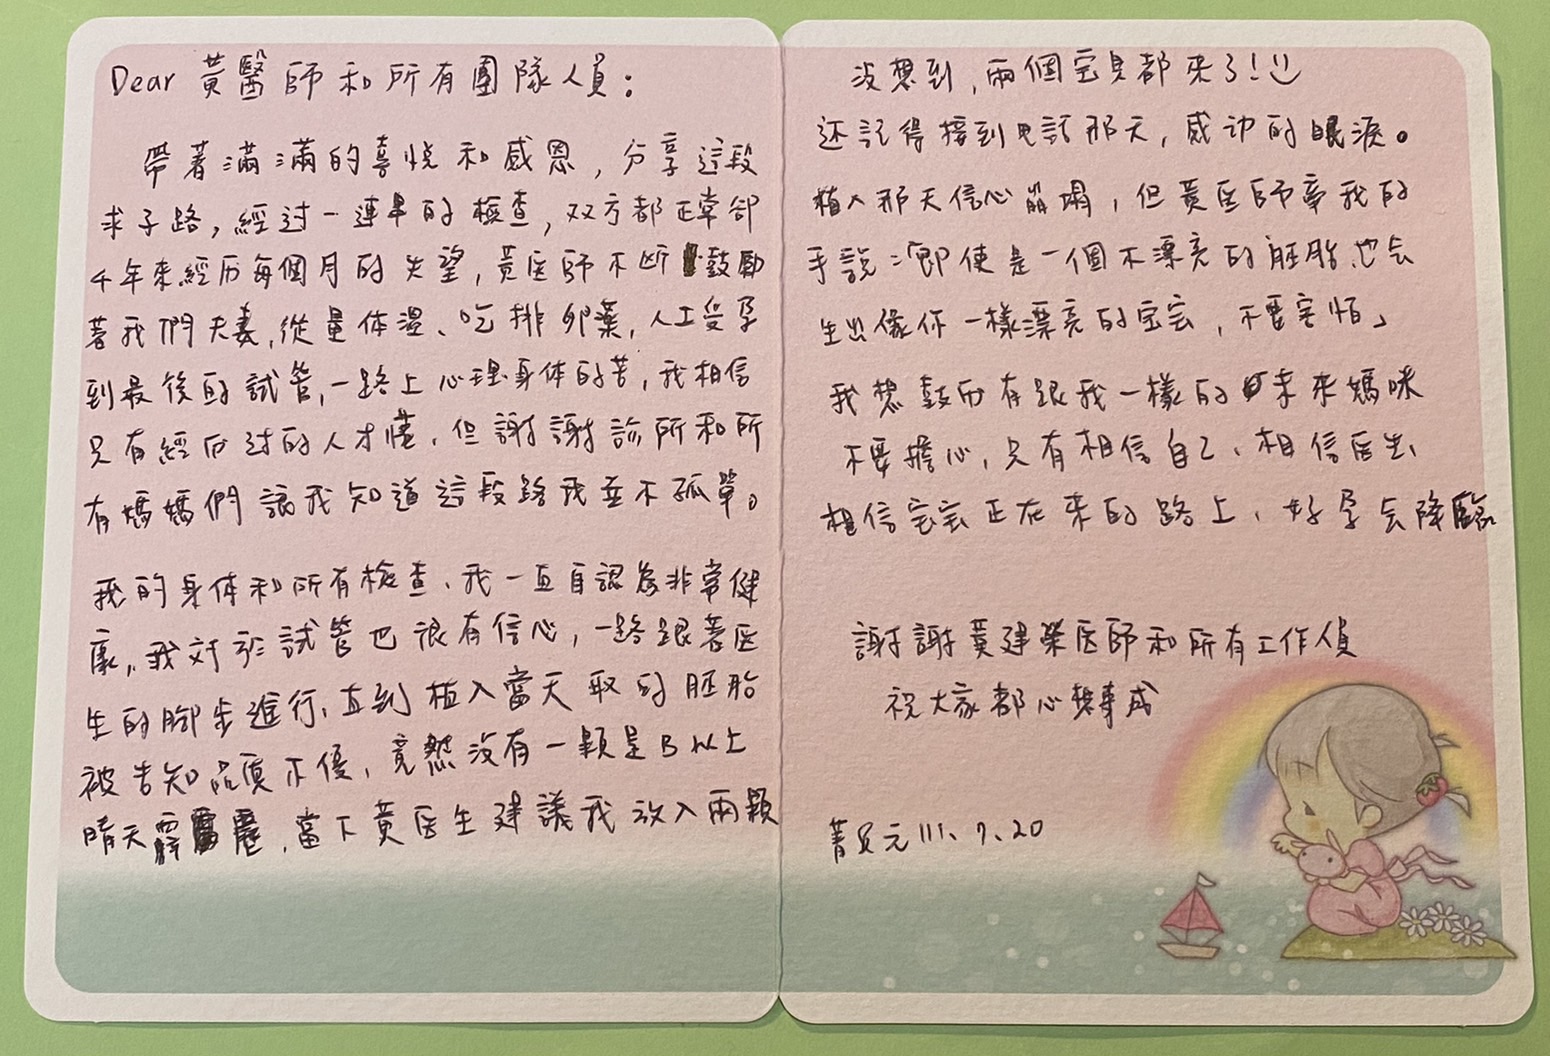 Dear 黃醫師和所有團隊人員:
帶著滿滿的喜悅和感恩,分享這段
求子路,經过一連串的檢查,双方都正常卻
4年來經历每個月的失望,黃医師不断鼓勵
著我們夫妻,從量体温、吃排卵藥,人工受孕
到最後的試管,一路上心理身体的苦,我相信
只有經历过的人才懂,但謝謝診所和所
有媽媽們讓我知道這段路我並不孤單。
我的身体和所有檢查、我一直自認為非常健
康,我对於試管也很有信心,一路跟著医
生的腳步進行,直到植入當天取的胚胎
被告知品質不優,竟然沒有一顆是B以上
晴天霹靂,當下黃医生建議我放入兩顆
沒想到,兩個宝貝都來了!
还記得接到电話那天,感动的眼淚。
植入那天信心崩塌,但黃医師牽我的
手說:「即使是一個不漂亮的胚胎也会
生出像你一樣漂亮的宝宝,不要害怕」
我想鼓历有跟我一樣的未來媽咪
不要擔心,只有相信自己、相信医生、
相信宝宝正在來的路上、好孕会降臨
謝謝黃建榮医師和所有工作人員
祝大家都心想事成
菁 元 111、7、20